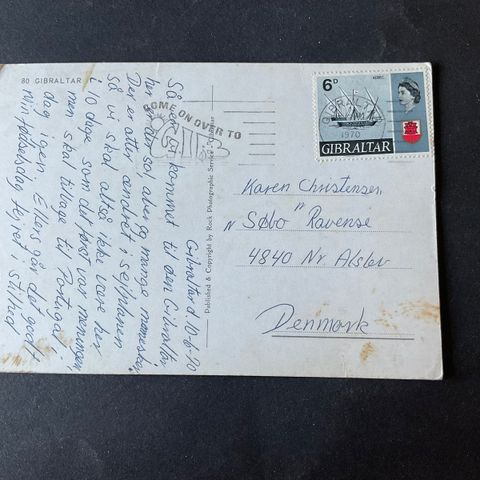 80 GIBRALTAR
Gibraltar d 10-6-70
Så er vi kommet til den Gibraltar
her er dan sol, aber og mange mennesker
Der er atter ændret i sejlplanen
så vi skal altså ikke være her
i 10 dage som det først var meningen,
men skal tilbage til Portugal i
dag igen. Ellers går det godt.
Min fødselsdag fejret i stilhed
COME ON OVER TO
Published & Copyright by Rock Photographic Service, Gibraltar
6D
GIBRALTAR
1970
GIBRALTAR
Karen Christensen,
"Søbo" Ravense
4840 Nr. Alslev
Denmark